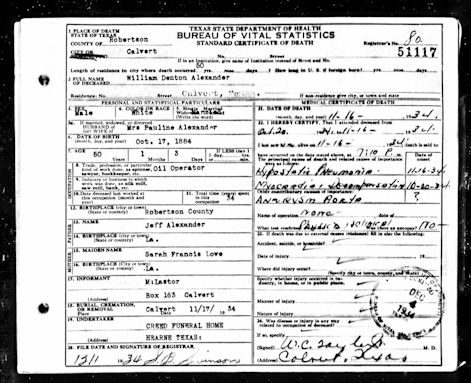 TEXAS STATE DEPARTMENT OF HEALTH
BUREAU OF VITAL STATISTICS
STANDARD CERTIFICATE OF DEATH
1 PLACE OF DEATH
STATE OF TEXAS
COUNTY OF Robertson
CITY OR Calvert
Registrar's No. 80
51117
If in an Institution, give name of Institution instead of Street and Number
Length of residence in city where death occurred 50 yrs. mos. days. How long in U. S. if foreign born? yrs. mos. days
2 FULL NAME OF DECEASED William Denton Alexander
Residence: Street Calvert, Texas.
PERSONAL AND STATISTICAL PARTICULARS
3. SEX Male
White
5. HUSBAND OF (or) WIFE OF Mrs Pauline Alexander
6. DATE OF BIRTH Oct. 17, 1884
(month, day and year)
7. AGE 50 Years 1 Months 3 Days
If LESS than 1 day
8. Trade, profession, or particular kind of work done, as spinner, sawyer, bookkeeper, etc. Oil Operator
9. Industry or business in which work was done, as silk mill, saw mill, bank, etc.
10. Date deceased last worked at this occupation (month and year)
11. Total time (years) spent in this occupation 34
12. BIRTHPLACE (city or town) (State or County) Robertson County
13. NAME Jeff Alexander
14. BIRTHPLACE (city or town) (State or County) La.
15. MAIDEN NAME Sarah Francis Love
16. BIRTHPLACE (city or town) (State or County) La.
17. INFORMANT
Box 163 Calvert
18. BURIAL, CREMATION, OR REMOVAL
Calvert 11/17/34
19. UNDERTAKER CREED FUNERAL HOME
HEARNE TEXAS
20. FILE DATE AND SIGNATURE OF REGISTRAR
MEDICAL CERTIFICATE OF DEATH
21. DATE OF DEATH 11-16- 34
(month, day and year)
22. I HEREBY CERTIFY, That I attended deceased from
Oct. 20. 34 11-16- 34
11-16- 34 death is said to
have occurred on the date stated above, at 7:10 P. m.
The principal cause of death and related causes of importance
Hypostatic Pneumonia 11-16-34
Myocardial decompensation 10-20-34
Aneurysm Aorta ?
Name of operation none
What test confirmed Physical & clinical Was there an autopsy? No
23. If death was due to external causes (violence) fill in also the following:
Accident, suicide, or homicide?
Date of injury 19
Where did injury occur?
(Specify city or town, county, and State)
Specify whether injury occurred in industry, in home, or in public place.
Manner of injury
Nature of injury
24. Was disease or injury in any way related to occupation of deceased?
If so, specify
(Signed) W.C. Taylor
Calvert, Texas
DEC 4 1934